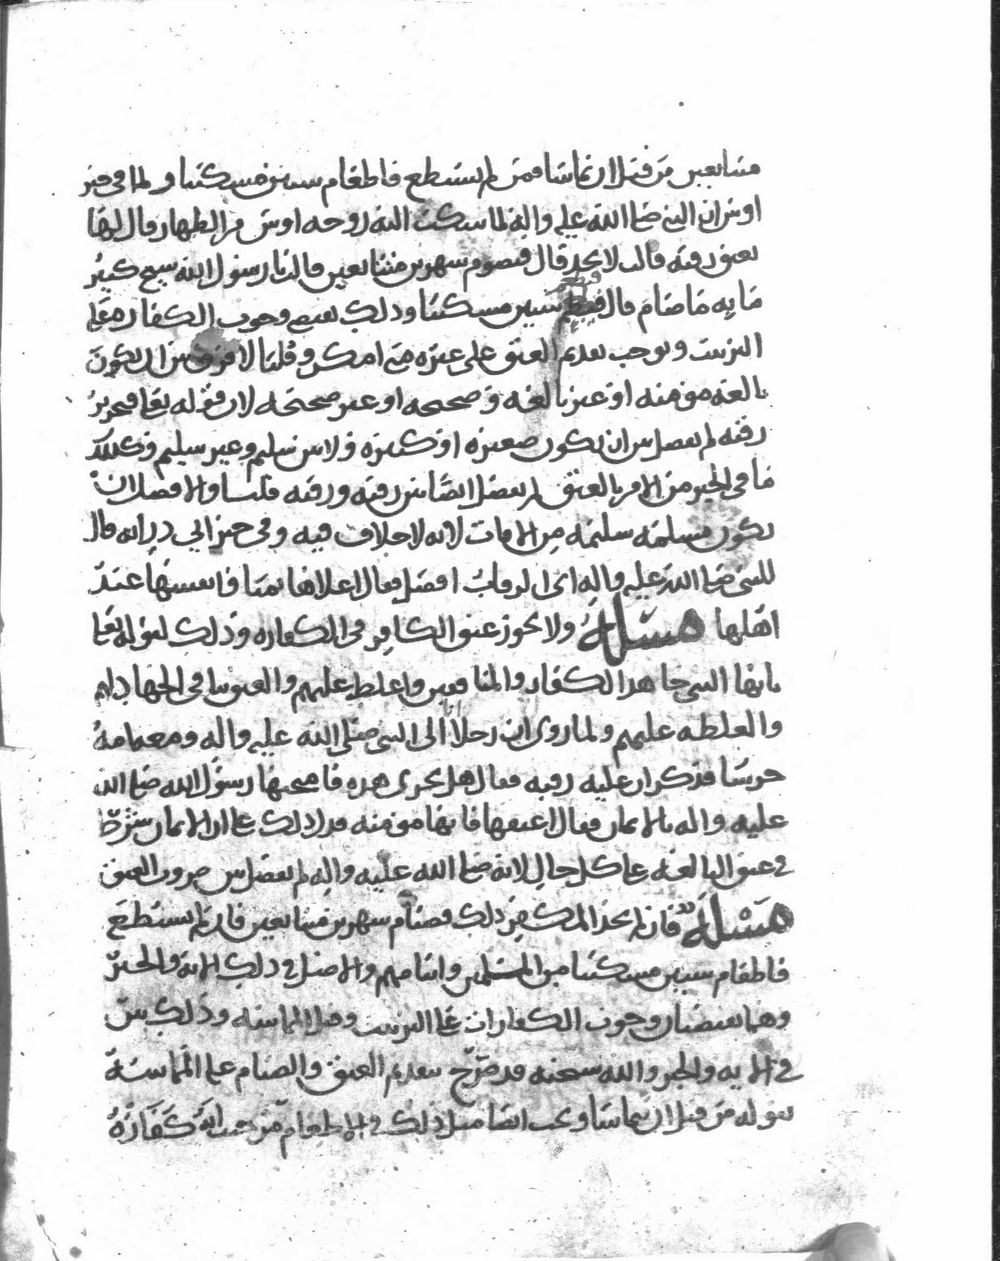 متتابعين من قبل ان يتماسا فمن لم يستطع فاطعام ستين مسكينا ولما في خبر
اوس ان النبي صلى الله عليه واله لما شكت اليه زوجه اوس من الظهار قال لها
يعتق رقبه قالت لا يجد قال فيصوم شهرين متتابعين قالت يا رسول الله شيخ كبير
ما به من صيام قال فيطعم ستين مسكينا وذلك يقتضي وجوب الكفاره على
الترتيب ويوجب تقديم العتق على غيره متى امكن وقلنا لا فرق بين ان يكون
بالغه مومنه او غير بالغه وصحيحه او غير صحيحه لان قوله تعالى فتحرير
رقبه لم يفصل بين ان يكون صغيره او كبيره ولا بين سليم وغير سليم وكذلك
ما في الخبر من الامر بالعتق لم يفصل ايضا بين رقبه ورقبه قلنا والافضل ان
يكون مسلمه سليمه من الافات لانه لا خلاف فيه وفي خبر ابي ذر انه قال
للنبي صلى الله عليه واله اي الرقاب افضل فقال اغلاها ثمنا وانفسها عند
اهلها مسئله ولا يجوز عتق الكافر في الكفاره وذلك لقوله تعالى
يا ايها النبي جاهد الكفار والمنافقين واغلظ عليهم والعتق ينافي الجهاد لهم
والغلظه عليهم ولما روي ان رجلا اتى النبي صلى الله عليه واله ومعه امه
خرسا فذكر ان عليه رقبه فقال هل يجزي هذه فامتحنها رسول الله صلى الله
عليه واله بالايمان فقال اعتقها فانها مومنه فدل ذلك على ان الايمان شرط
في عتق البالغه على كل حال لانه صلى الله عليه واله لم يفصل بين ضروب العتق
مسئله فان لم يجد المكفر ذلك فصيام شهرين متتابعين فان لم يستطع
فاطعام ستين مسكينا من المسلمين وايتامهم والاصل في ذلك الايه والخبر
وهما يقتضيان وجوب الكفارات على الترتيب وقبل المماسه وذلك بين
في الايه والخبر والله سبحنه قد صرح بتقديم العتق والصيام على المماسه
بقوله من قبل ان يتماسا ويجب ايضا مثل ذلك في الاطعام من حيث انه كفاره